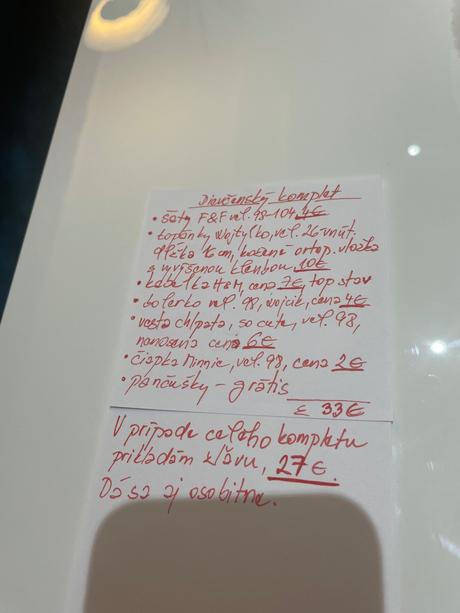 Dievčenský komplet
• šaty F&F vel. 98-104 4€
• topánky Wojtylko, vel. 26 vnút.
dĺžka 16 cm, kožená ortop. vložka
s vyvýšenou klenbou 10€
• kabelka H&M, cena 7€, top stav
• bolerko vel. 98, wojcik, cena 4€
• vesta chlpatá, so cute, vel. 98,
nenosená cena 6€
• čiapka Minnie, vel. 98, cena 2€
• pančušky - grátis
Σ 33€
V prípade celého kompletu
prikladám zľavu, 27€.
Dá sa aj osobitne.